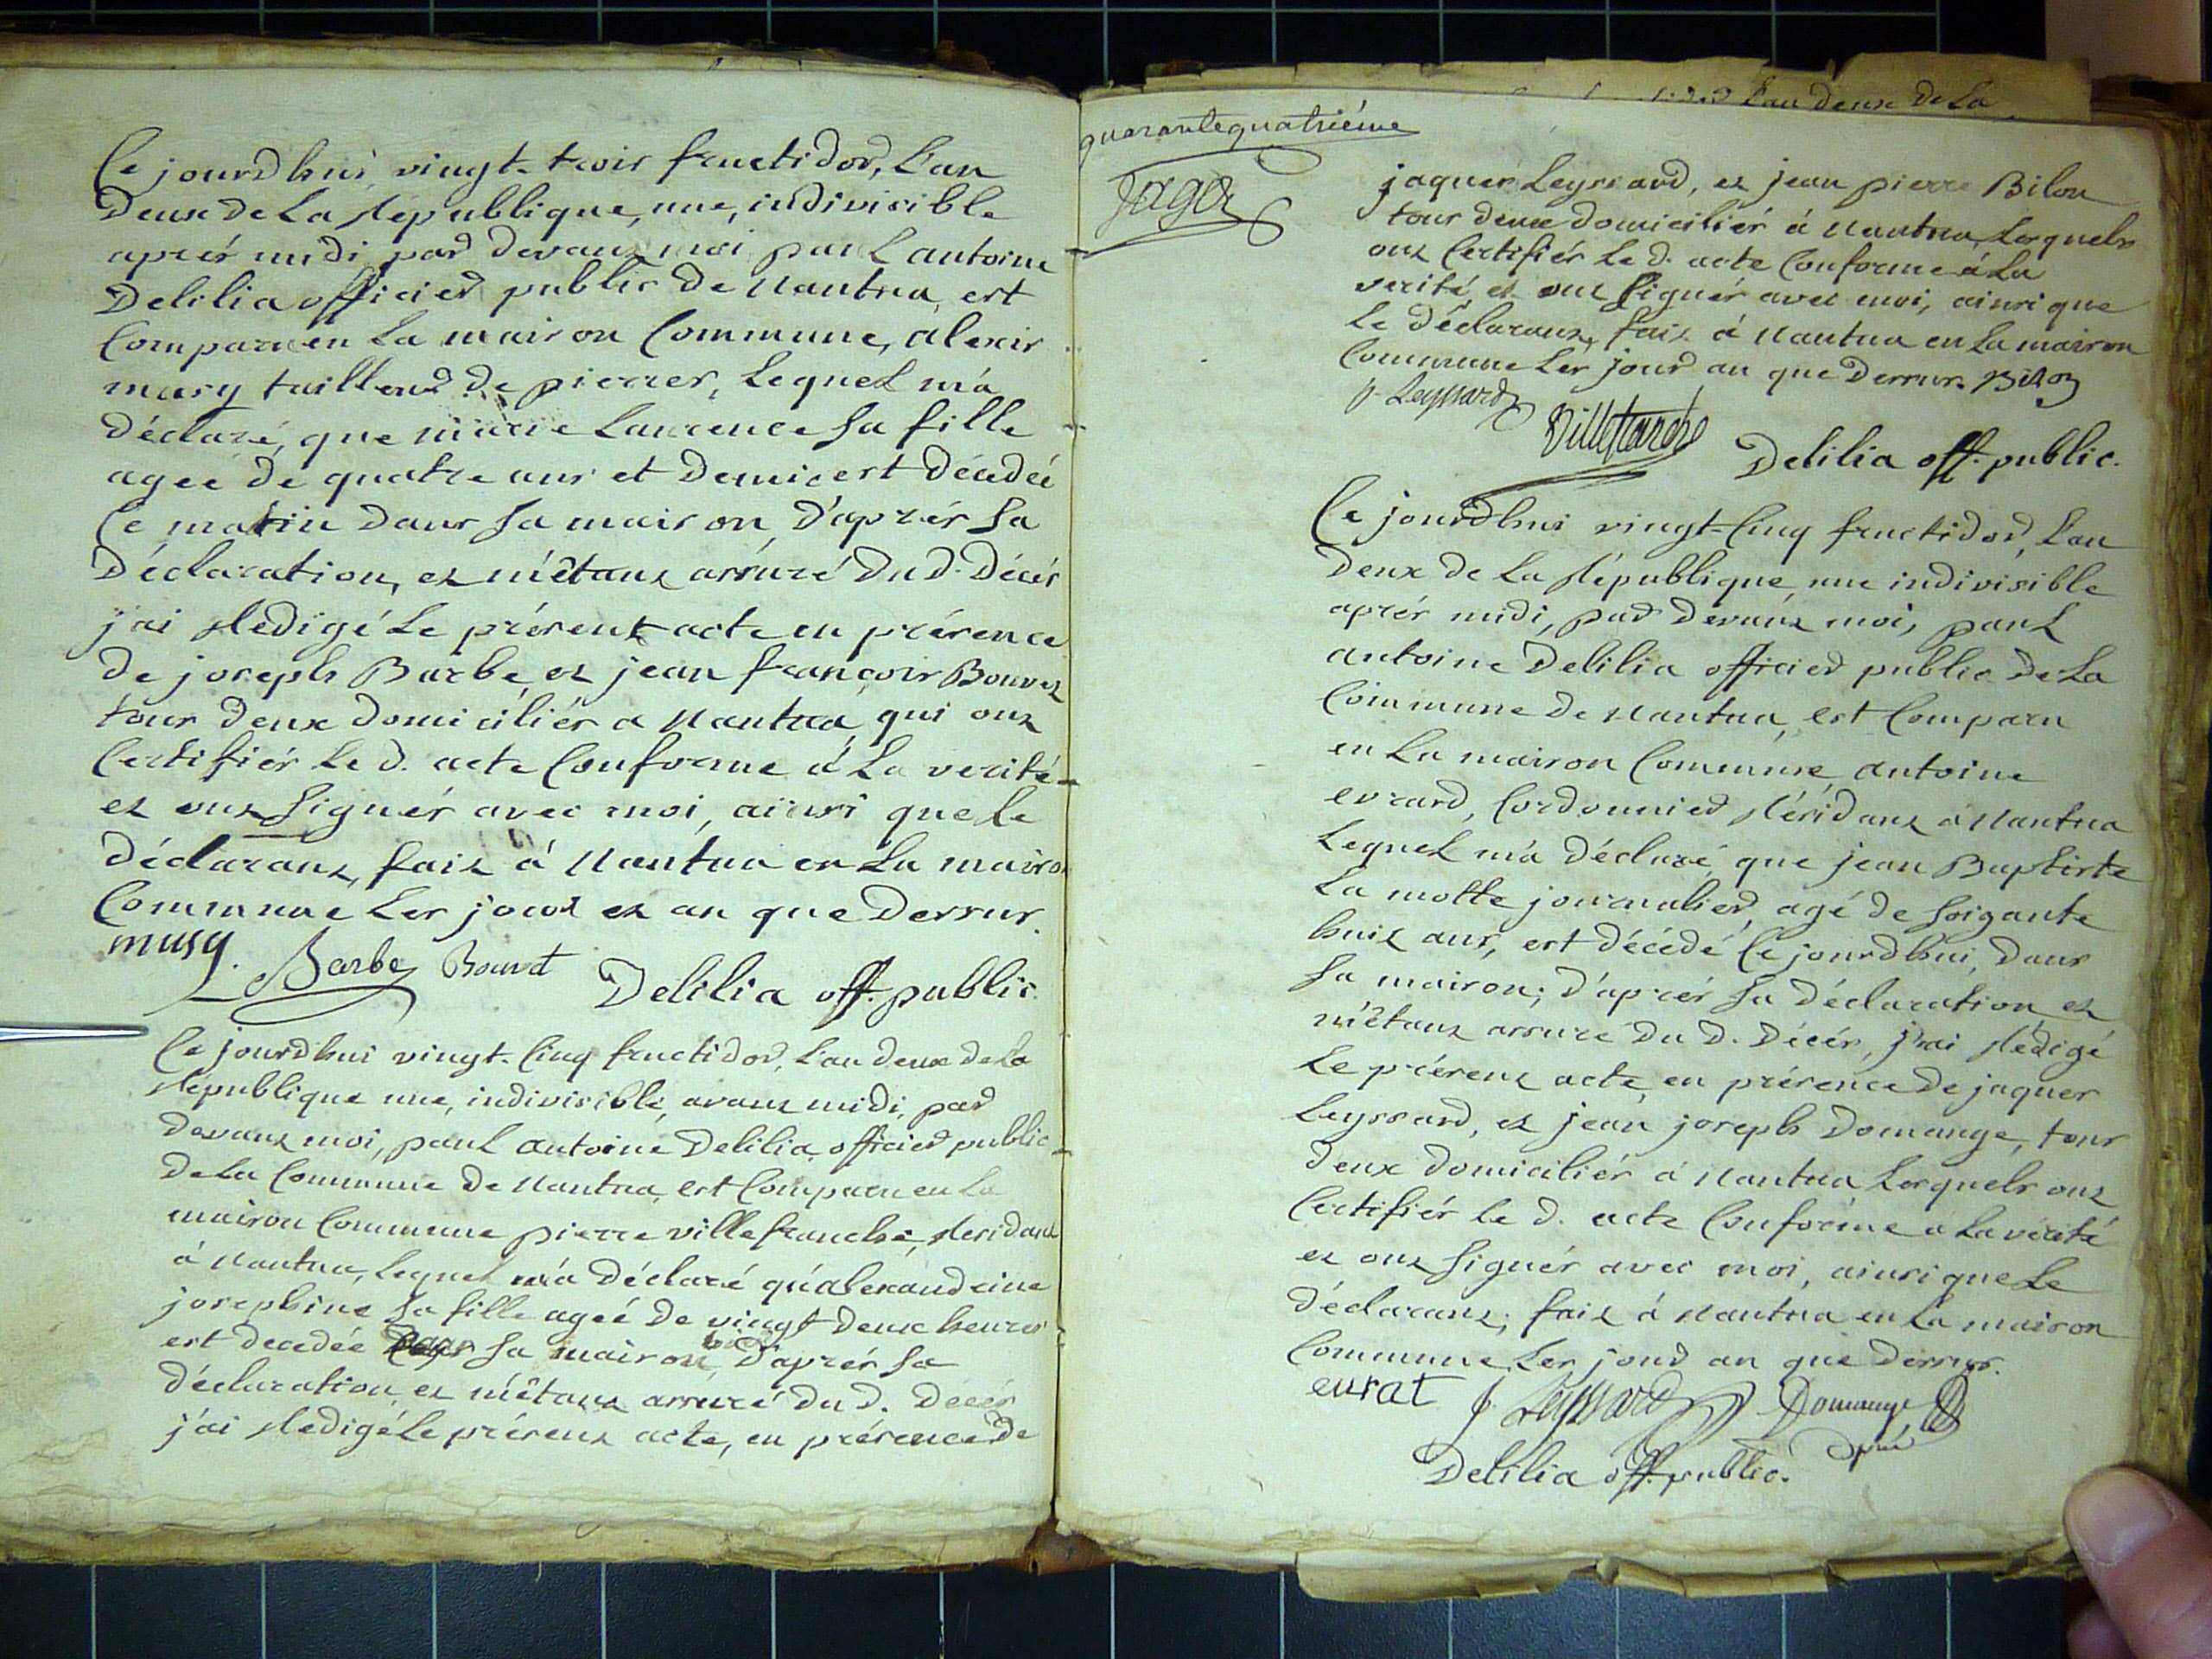 Ce jourdhui vingt-trois fructidor, L'an
Deux de La République, une, indivisible
après midi par devant moi paul antoine
Delilia officier public de Nantua, est
Comparu en la maison Commune, alexis
musy tailleur de pierres, Lequel m'a
Déclaré, que marie Laurence sa fille
agée de quatre ans et demie est décédée
ce matin dans sa maison, D'après sa
Déclaration, et m'étant assuré Dud. Décès
j'ai Redigé Le présent acte en présence
de joseph Barbe, et jean françois Bouvet
tous deux domiciliés a Nantua, qui ont
Certifiés Le d. acte Conforme à La verité
et ont signés avec moi, ainsi que Le
Déclarant, fait à Nantua en La maison
Commune Les jour et an que Dessus.
musy. Barbe Bouvet Delilia off. public.
Ce jourdhui vingt-Cinq fructidor, L'an deux de La
République une, indivisible, avant midi, par
devant moi, paul antoine Delilia, officier public
de La Commune de Nantua, est Comparu en La
maison Commune pierre villefranche, Residant
à Nantua, Lequel m'a Déclaré qu'alexandrine
josephine sa fille agée de vingt deux heures
est decedée sa maison, D'après sa
déclaration, et m'étant assuré Dud. Decès
j'ai Redigé Le présent acte, en présence de
L'an deux de La
quarantequatriéme
Jagot
jaques Leyssard, et jean pierre Bilon
tous deux domiciliés à Nantua, Lesquels
ont Certifiés Le d. acte Conforme à La
verité, et ont signés avec moi, ainsi que
Le Déclarant, fait à Nantua en La maison
Commune Les jour an que Dessus. Bilon
j. Leyssard Villefranche Delilia off. public.
Ce jourdhui vingt-Cinq fructidor, L'an
Deux de La République, une indivisible
après midi, par devant moi, paul
antoine Delilia officier public de La
Commune de Nantua, est Comparu
en La maison Commune antoine
evrard, Cordonnier Résidant a Nantua
Lequel m'a Déclaré, que jean Baptiste
La motte journalier, agé de soixante
huit ans, est décédé Ce jourdhui, Dans
sa maison; D'après sa Déclaration et
m'étant assuré Du d. Décès, j'ai Rédigé
Le présent acte, en présence de jaques
Leyssard, et jean joseph Domange, tous
deux domiciliés à Nantua Lesquels ont
Certifiés Le d. acte Conforme a La vérité
et ont signés avec moi, ainsi que Le
Déclarant; fait à Nantua en La maison
Commune Les jour an que Dessus.
eurat j. Leyssard Domange
Delilia off. public.